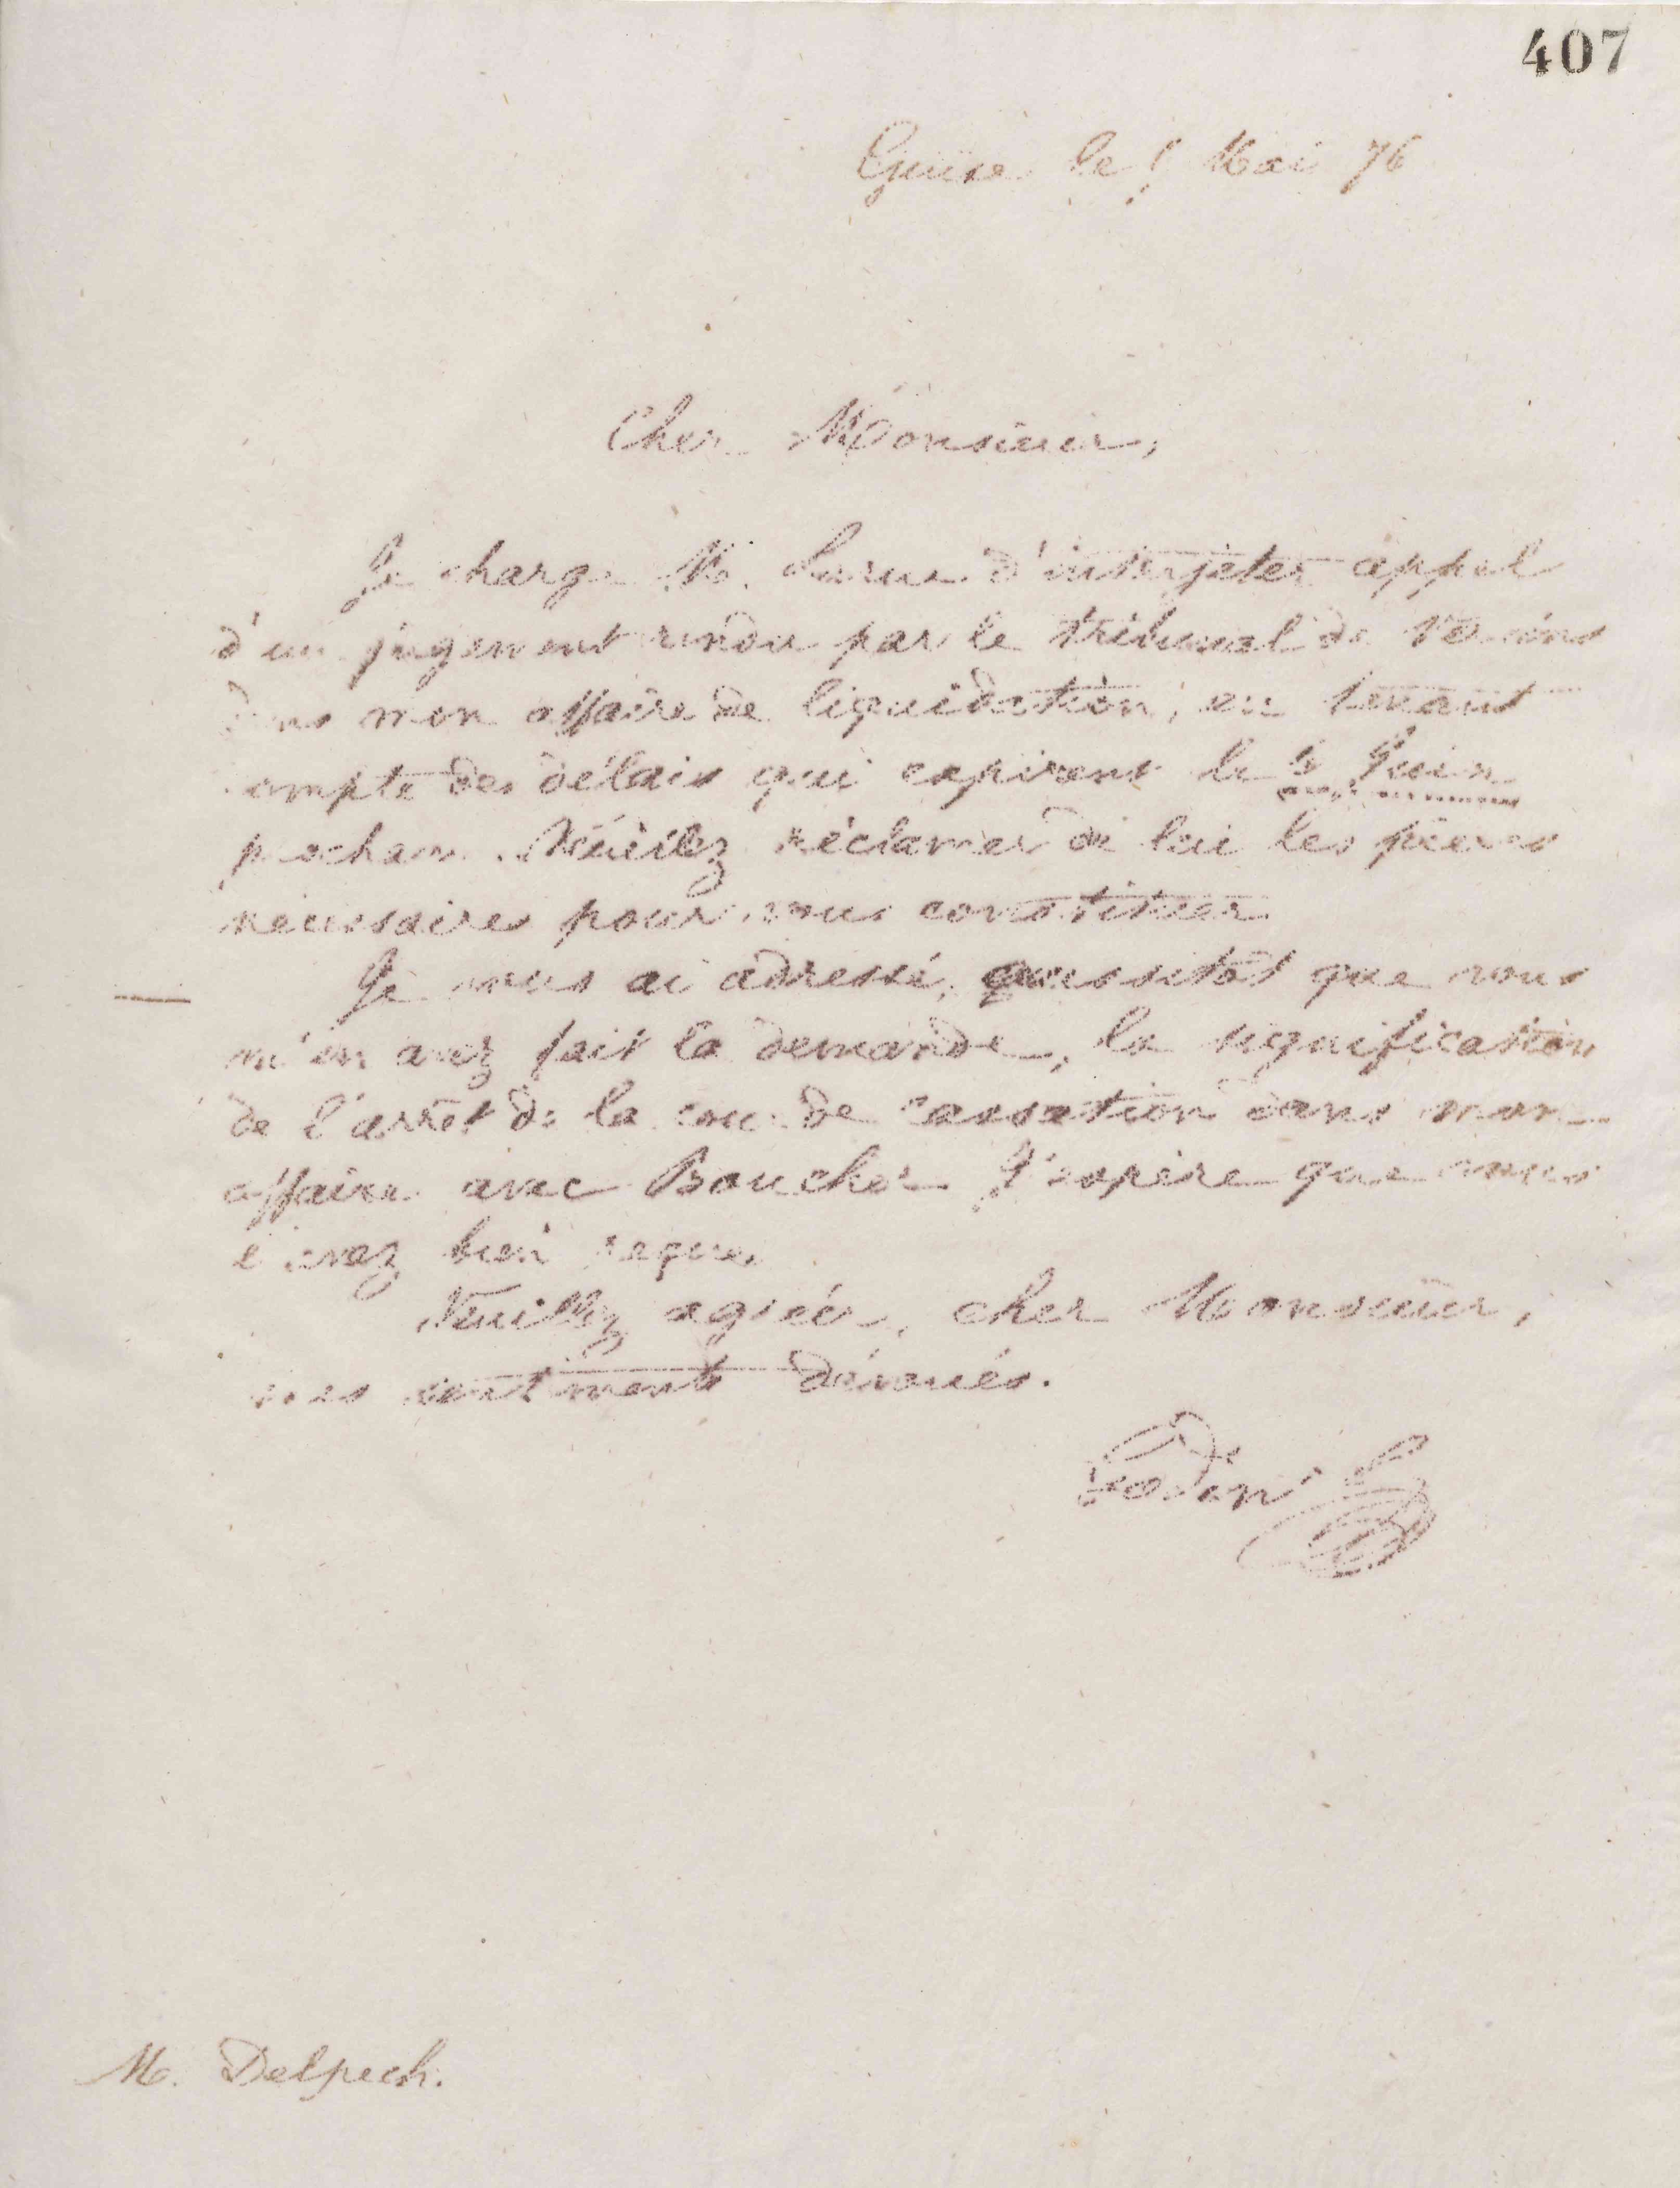 407
Guise le Mai 76
Cher Monsieur,
Je charge M. d'interjeter appel
d'un jugement rendu par le tribunal de Vervins
dans mon affaire de liquidation, en tenant
compte des délais qui expirent le 5 Juin
prochain. Veuillez réclamer de lui les pièces
nécessaires pour vous constituer.
Je vous ai adressé, aussitôt que vous
m'en avez fait la demande, la signification
de l'arrêt de la cour de cassation dans mon
affaire avec Boucher. J'espère que vous
l'avez bien reçue.
Veuillez agréer, cher Monsieur,
mes sentiments dévoués.
Godin
M. Delpech.